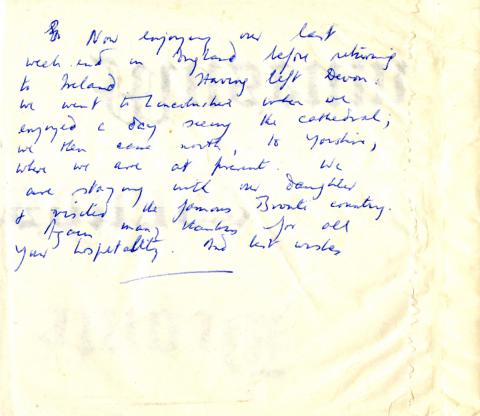 Now enjoying our last
week-end in England before returning
to Ireland. Having left Devon.
we went to Lincolnshire where we
enjoyed a day seeing the cathedral,
we then came north, to Yorshire,
where we are at present. We
are staying with our daughter
& visited the famous Bronte country.
Again many thanks for all
your hospitality. And best wishes